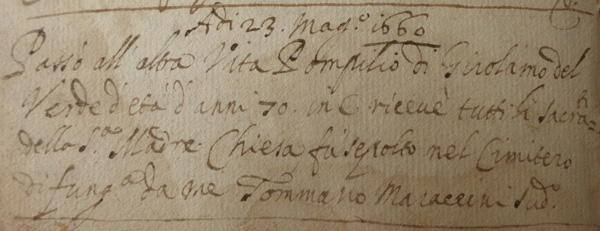 Adi 23. Mag.o 1660
Passò all'altra Vita Pompilio di Girolamo del
Verde d'età d'anni 70. in C. ricevè tutti li Sacra-ti
della S.a Madre Chiesa fu sepolto nel Cimitero
di da me Tommaso